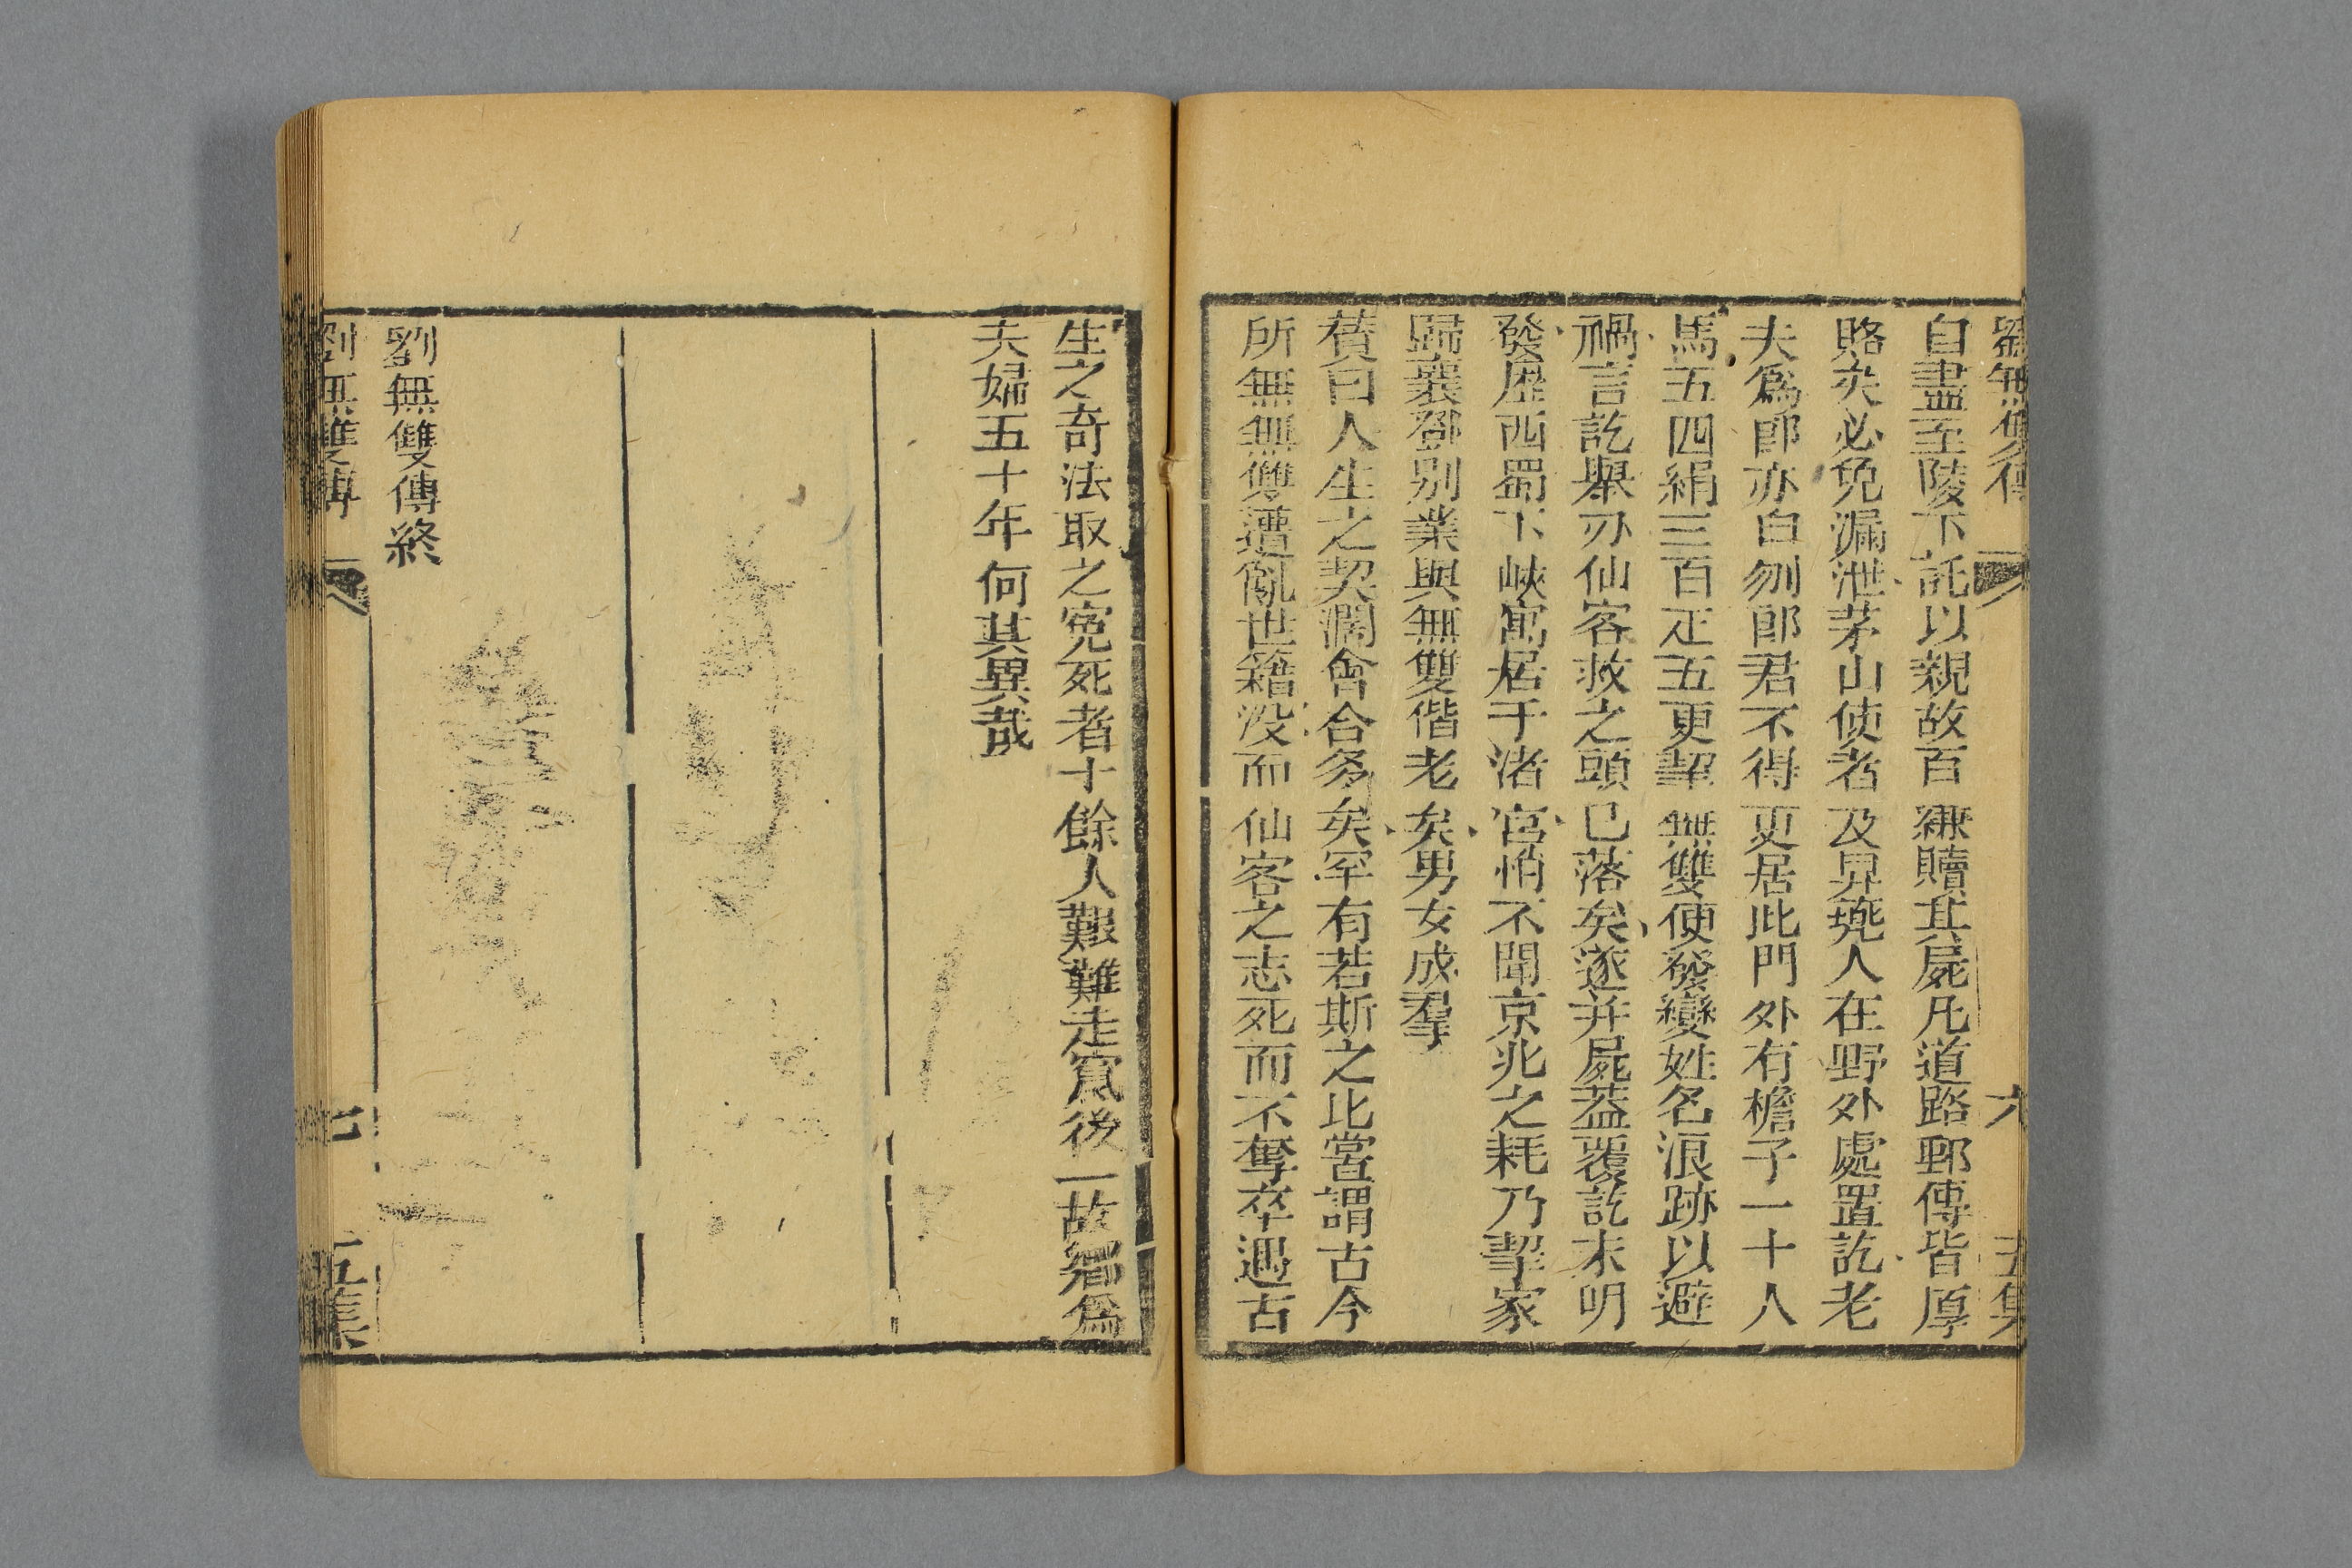 劉無雙傳 六 五集
自盡至陵下託以親故百縑贖其屍凡道路郵傳皆厚
賂矣必免漏泄茅山使者及舁篼人在野外處置訖老
夫爲郎亦自刎郎君不得更居此門外有檐子一十人
馬五四絹三百疋五更挈無雙便發變姓名浪跡以避
禍言訖舉刃仙客救之頭已落矣遂并屍葢覆訖未明
發歴西蜀下峽寓居于渚宮悄不聞京兆之耗乃挈家
歸襄鄧别業與無雙偕老矣男女成羣
贊曰人生之契濶會合多矣罕有若斯之比常謂古今
所無無雙遭亂世籍没而仙客之志死而不奪卒遇古
生之奇法取之寃死者十餘人艱難走竄後一故鄉爲
夫婦五十年何其異哉
劉無雙傳終
劉無雙傳 七 五集